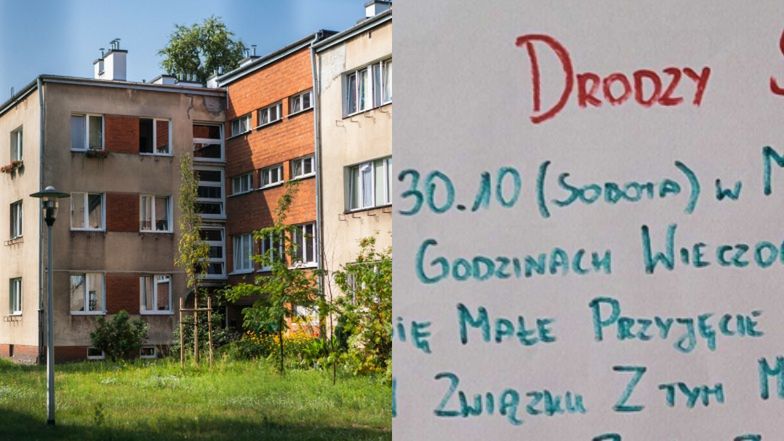 DRODZY
30.10 (SOBOTA) W
GODZINACH
MAŁE PRZYJĘCIE
ZWIĄZKU Z TYM